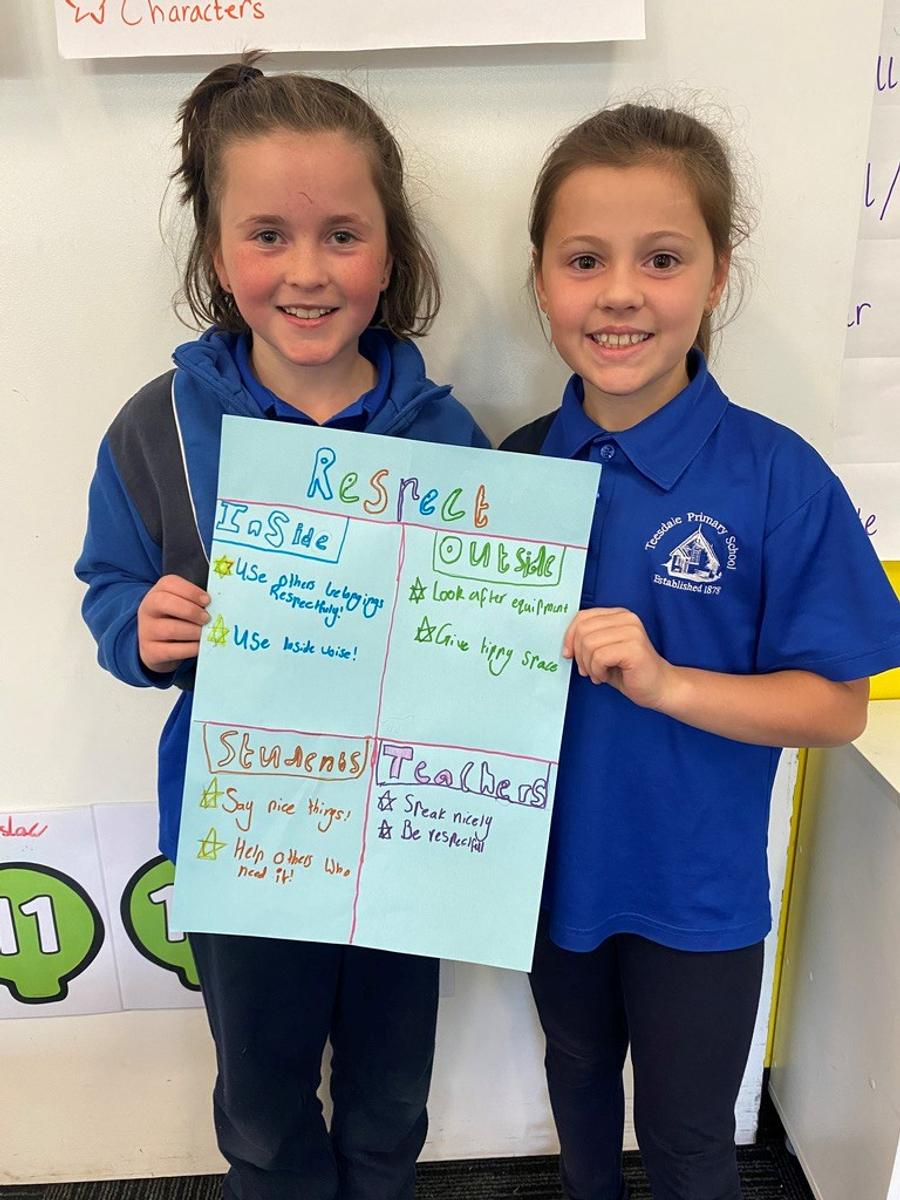 Characters
Respect
InSide
Use others belongings
Respectfully!
Use Inside voise!
Outside
Look after equipment
Give tippy space
Students
Say nice things!
Help others who
need it!
Teachers
Speak nicely
Be respectfull
Teesdale Primary School
Established 1878
11